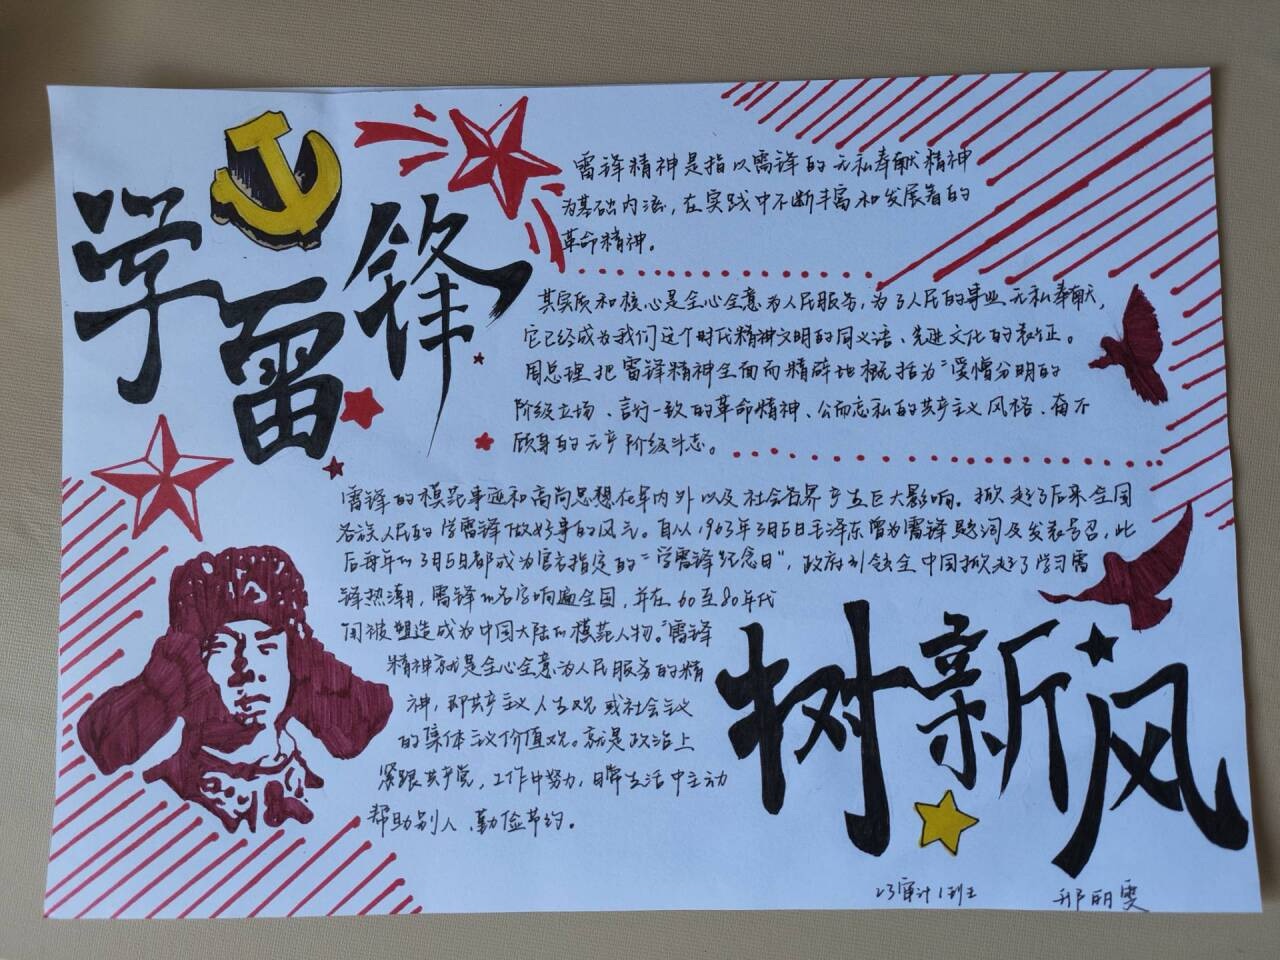 学雷锋
雷锋精神是指以雷锋的无私奉献精神
为基础内涵，在实践中不断丰富和发展着的
革命精神。
其实质和核心是全心全意为人民服务，为了人民的事业无私奉献，
它已经成为我们这个时代精神文明的同义语、先进文化的表征。
周总理把雷锋精神全面而精辟地概括为“爱憎分明的
阶级立场、言行一致的革命精神、公而忘私的共产主义风格、奋不
顾身的无产阶级斗志。
雷锋的模范事迹和高尚思想在军内外以及社会各界产生巨大影响。掀起了后来全国
各族人民的学雷锋做好事的风气。自从1963年3月5日毛泽东曾为雷锋题词及发表号召，此
后每年的3月5日都成为官方指定的“学雷锋纪念日”，政府引领全中国掀起了学习雷
锋热潮，雷锋的名字响遍全国，并在60至80年代
间被塑造成为中国大陆的模范人物。“雷锋
精神就是全心全意为人民服务的精
神，即共产主义人生观或社会主义
的集体主义价值观。就是政治上
紧跟共产党，工作中努力，日常生活中主动
帮助别人、勤俭节约。
树新风
23审计1班
邢丽雯